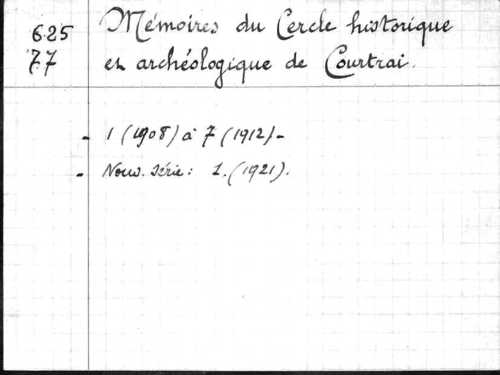 625 Mémoires du Cercle historique
77 et archéologique de Courtrai.
- 1 (1908) à 7 (1912) -
- Nouv. série : 1. (1921).